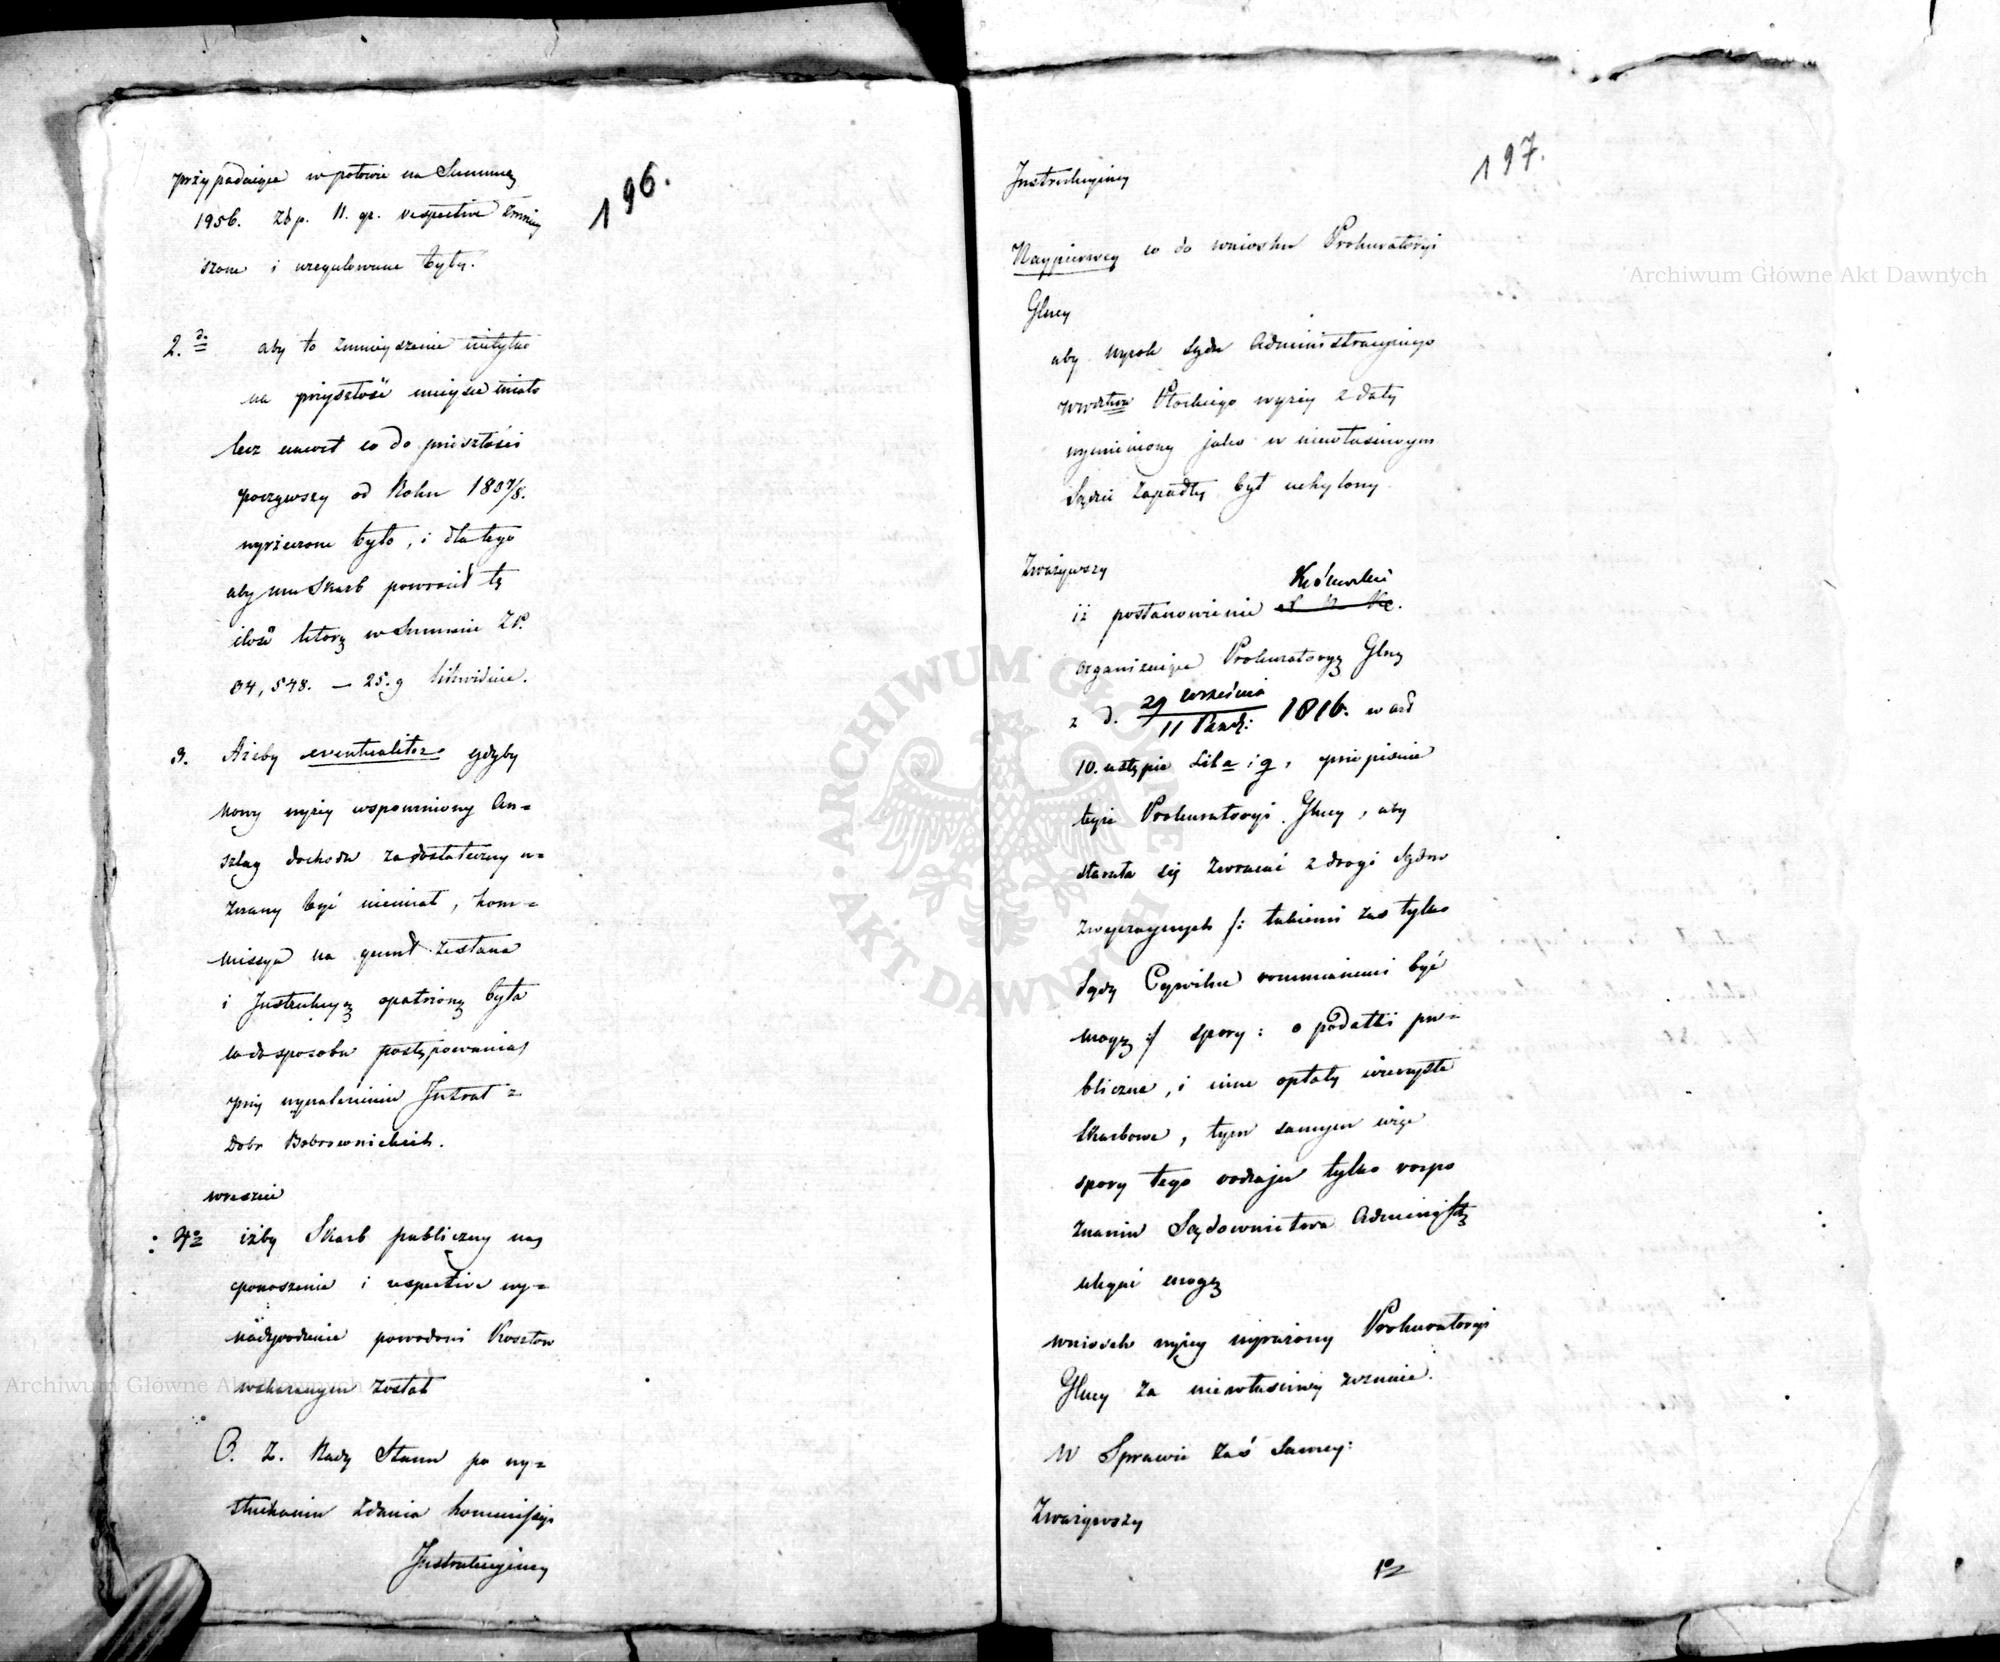 196.
przypadaiące w połowie na Summę
1956. Złp. 11. gr. respective zmniey
szone i uregulowane były.
2.do aby to zmnieyszenie nietylko
na przyszłość mieysce miało
lecz nawet co do przeszłości
począwszy od Roku 1807/8.
wyrzeczone było, i dla tego
aby mu Skarb powrócił tę
ilość którą w Summie ZP.
34,548. — 25. g likwiduie.
3. Ażeby eventualiter gdyby
Nowy wyżey wspomniony An=
szlag dochodu za dostateczny u=
znany być niemiał, kom=
missya na grunt zesłana
i Instrukcyą opatrzoną była
co do sposobu postępowania
przy wynalezieniu Intrat=
Dobr Bobrownickich.
wreszcie
4to iżby Skarb publiczny na
ponoszenie i respective wy=
nadgrodzenie powodowi Kosztow
wskazanym został
D. Z. Rady Stanu po wy=
słuchaniu Zdania kommissyi
Instrukcyiney
197.
Instrukcyiney
Naypierwey co do wniosku Prokuratoryi
Głney
aby wyrok Sądu Administracyinego
wwdztwa Płockiego wyżey z daty
wymieniony jako w niewłaściwym
Sądzie zapadły był uchylony.
Zważywszy
iż postanowienie Królewskie
organizuiące Prokuratoryą Głną
z d. 29 Września / 11 Paźdź: 1816. w art
10. ustępie Lit a i g, przepisuie
teyże Prokuratoryi Głney, aby
starała się zwracać z drogi Sądow
zwyczaynych /: takiemi zas tylko
Sądy Cywilne rozumianemi być
mogą :/ spory: o podatki pu=
bliczne, i inne opłaty wieczyste
Skarbowe, tym samym więc
spory tego rodzaju tylko rozpo
znaniu Sądownictwa Administr
uledz mogą
wniosek wyżey wyrażony Prokuratoryi
Głney za niewłaściwy uznaie.
W Sprawie zaś Samey:
Zważywszy
1o
Archiwum Główne Akt Dawnych
Archiwum Główne Akt Dawnych
ARCHIWUM GŁÓWNE · AKT DAWNYCH ·